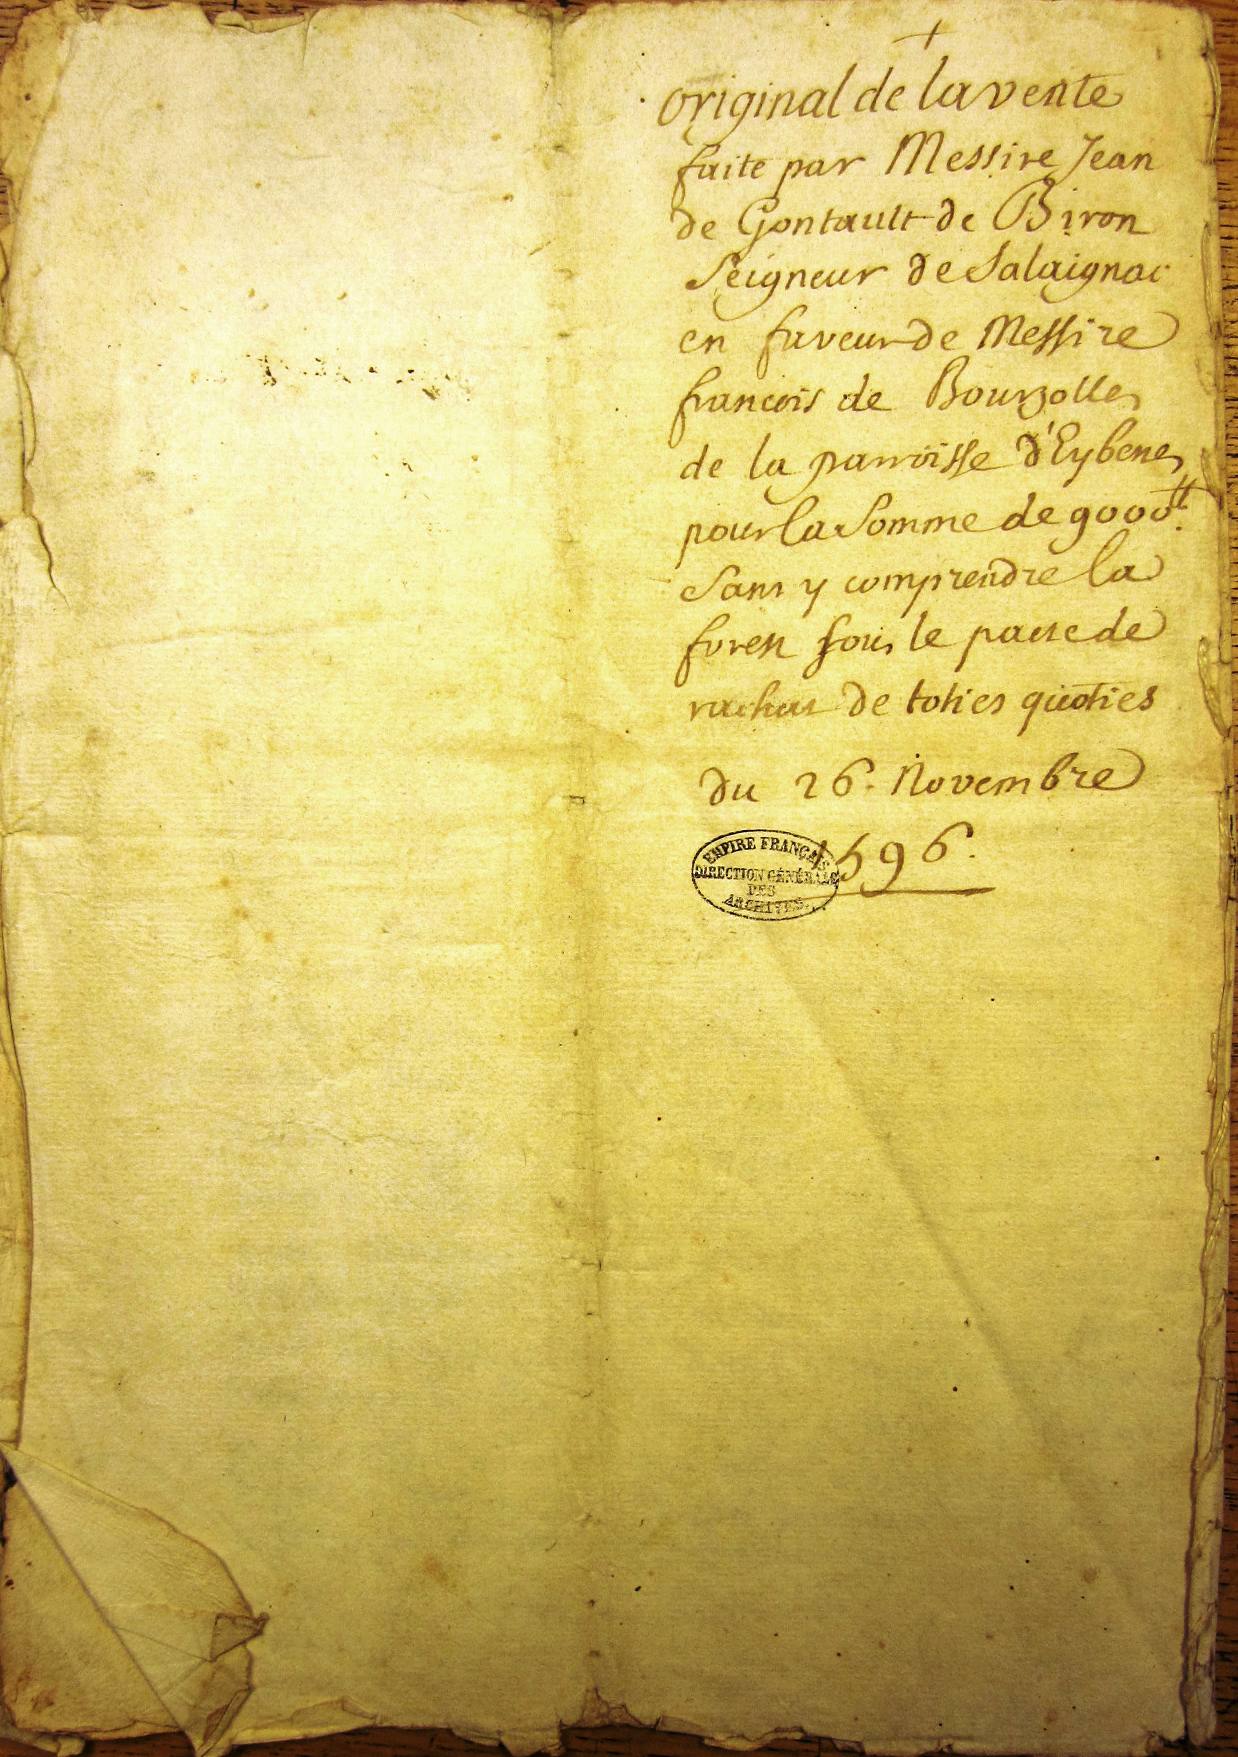 +
original de la vente
faite par Messire Jean
de Gontault de Biron
Seigneur de Salaignac
en faveur de Messire
francois de Bourzolles
de la parroisse d'Eybenes
pour la Somme de 9000tt.
Sans y comprendre la
forest sous le pacte de
rachat de toties quoties
du 26. Novembre
1596.
EMPIRE FRANÇAIS
DIRECTION GÉNÉRALE
DES
ARCHIVES